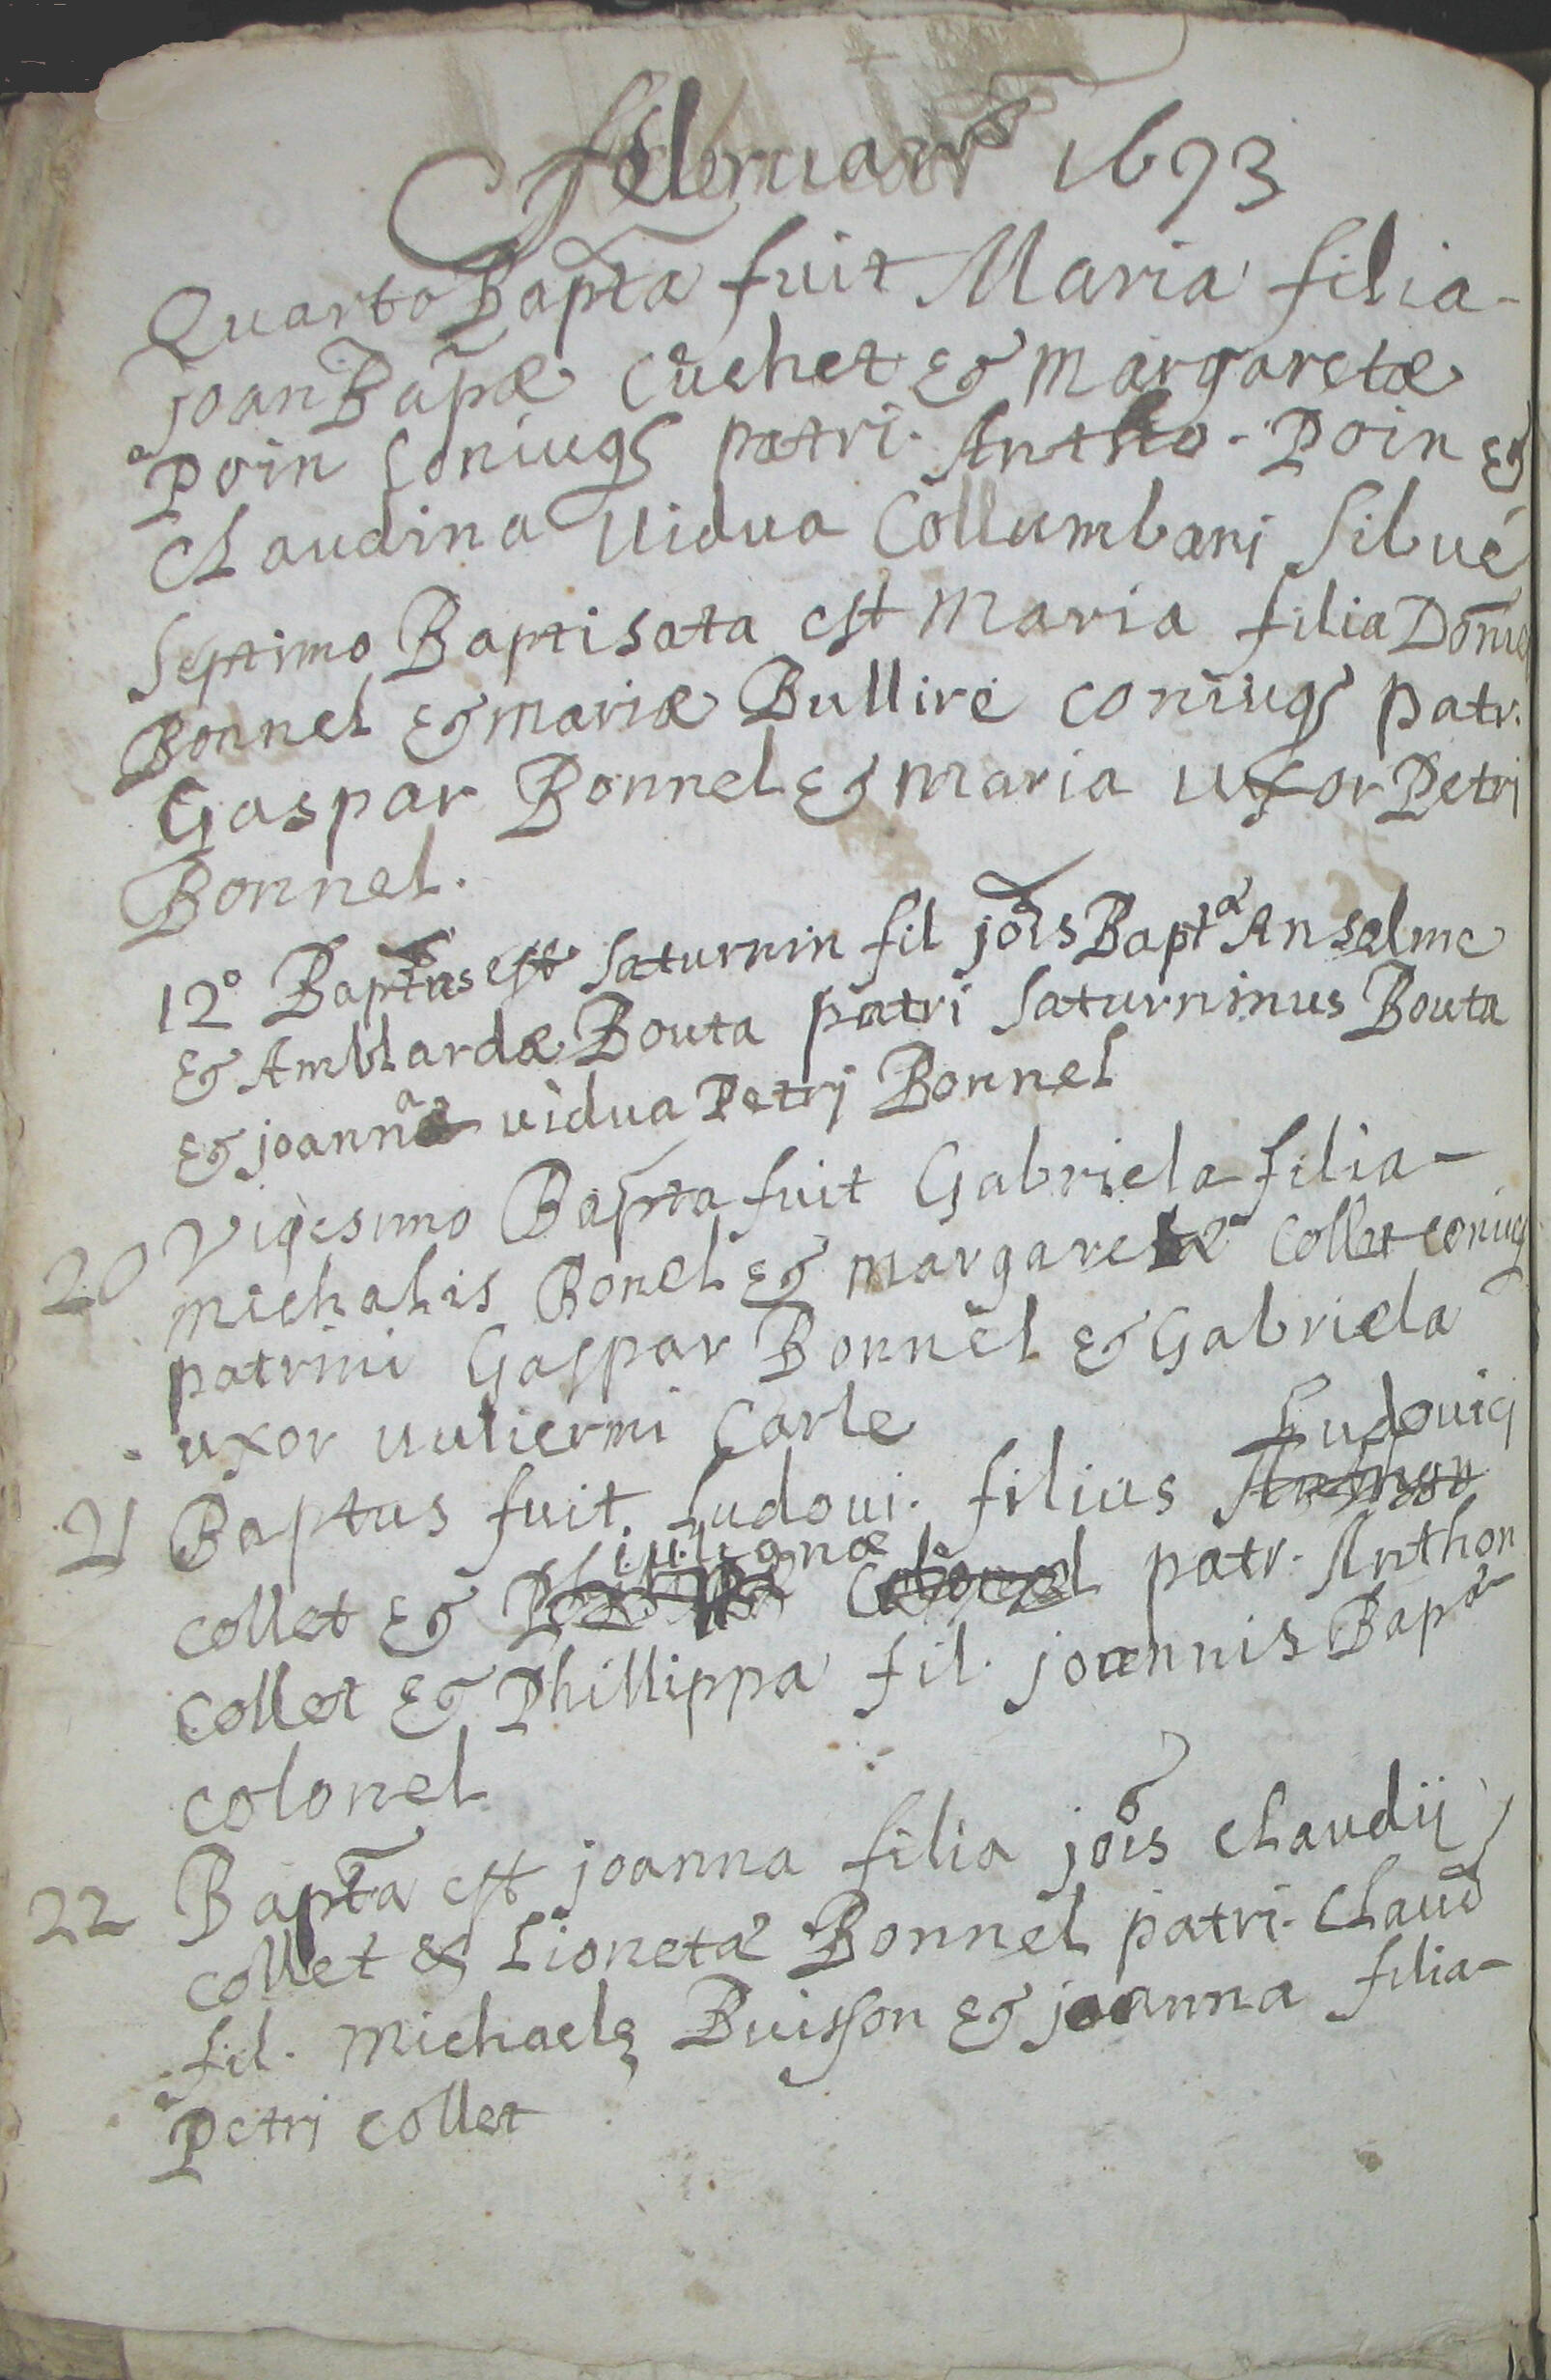 februarii 1693
Quarto Bapta fuit Maria filia
joan Bapæ Cuchet & Margaretæ
Poin coniugs patri. Antho. Poin &
Claudina vidua Collumbani Silvé
Septimo Baptisata est Maria filia Domi
Bonnel & mariæ Bullire coniugs patr.
Gaspar Bonnel & maria uxor Petri
Bonnel.
12° Baptus est Saturnin fil jois Bapta Anselme
& Amblardæ Bouta patri Saturninus Bouta
& joanna vidua Petrj Bonnel
20 Vigesimo Bapta fuit Gabriela filia
michalis Bonel & margaretæ Collet coniug
patrini Gaspar Bonnel & Gabriela
uxor vuliermi Carle
Ludovicj
21 Baptus fuit Ludovi. filius Anthon
collet & patr. Anthon
collet & Phillippa fil. joannis Bapa
colonel
22 Bapta est joanna filia jois claudij
collet & Lionetæ Bonnel patri. Claud
fil. Michaelis Buisson & joanna filia
Petrj collet